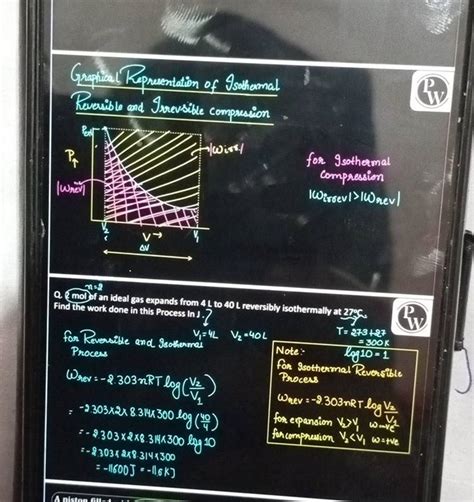 Graphical Representation of Isothermal
Reversible and Irreversible compression
PW
Pex
|Wirr|
P↑
|Wrev|
for Isothermal
compression
|Wirrev|>|Wrev|
V2
V→
V1
ΔV
n=2
Q. 2 mol of an ideal gas expands from 4 L to 40 L reversibly isothermally at 27°C.
Find the work done in this Process In J.?
PW
V1=4L V2=40L
T=273+27
=300K
log10=1
for Reversible and Isothermal
Process
Wrev=-2.303nRT log(V2/V1)
=-2.303×2×8.314×300 log(40/4)
=-2.303×2×8.314×300 log10
=-2.303×2×8.314×300
=-11600J=-11.6KJ
Note:-
For Isothermal Reversible
Process
Wrev=-2.303nRT log V2/V1
for expansion V2>V1 w=-ve
for compression V2<V1 w=+ve